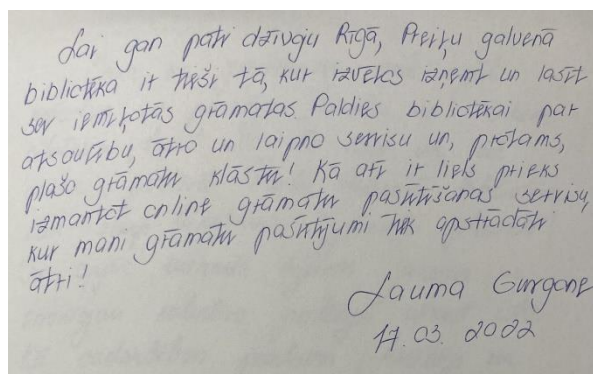 Lai gan pati dzīvoju Rīgā, Preiļu galvenā
bibliotēka ir tieši tā, kur izvēlos izņemt un lasīt
sev iemīļotās grāmatas. Paldies bibliotēkai par
atsaucību, ātro un laipno servisu un, protams,
plašo grāmatu klāstu! Kā arī ir liels prieks
izmantot online grāmatu pasūtīšanas servisu,
kur mani grāmatu pasūtījumi tiek apstrādāti
ātri!
Lauma Gurgone
17.03.2022